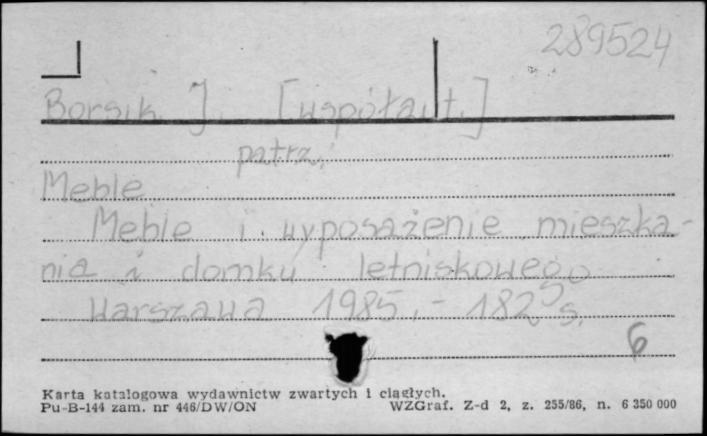 289524
Borsik J. [współaut.]
patrz:
Meble
Meble i wyposażenie mieszka-
nia i domku letniskowego
Warszawa 1985. - 182 s.
6
Karta katalogowa wydawnictw zwartych i ciągłych.
Pu-B-144 zam. nr 446/DW/ON WZGraf. Z-d 2, z. 255/86, n. 6 350 000